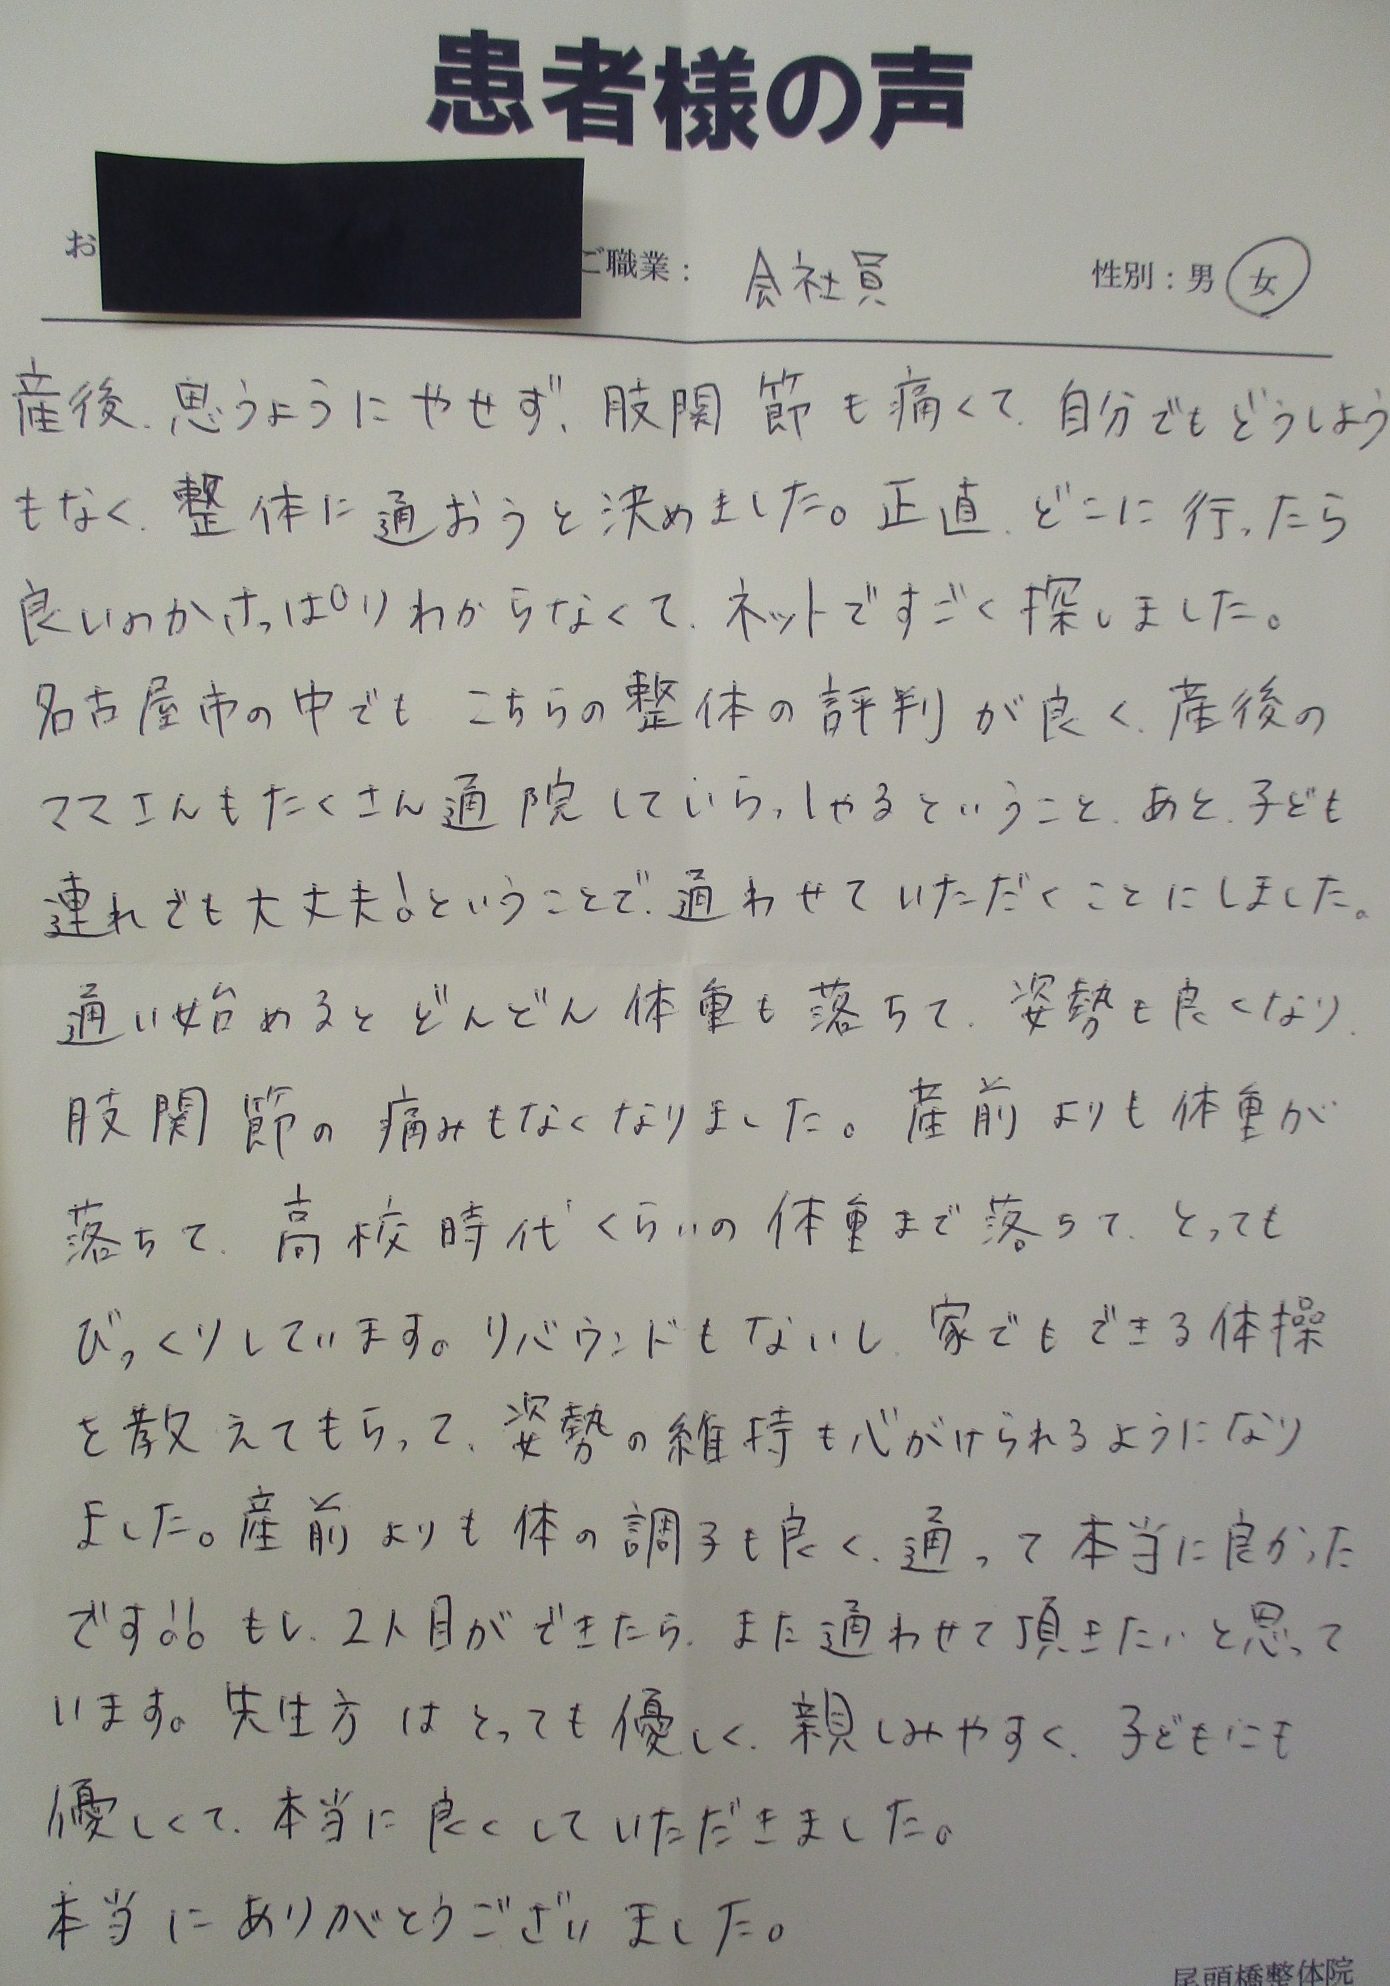 患者様の声
お
ご職業： 会社員
性別：男 女
産後、思うようにやせず、股関節も痛くて、自分でもどうしよう
もなく、整体に通おうと決めました。正直、どこに行ったら
良いのかさっぱりわからなくて、ネットですごく探しました。
名古屋市の中でも こちらの整体の評判が良く、産後の
ママさんもたくさん通院していらっしゃるということ、あと、子ども
連れでも大丈夫！ということで、通わせていただくことにしました。
通い始めるとどんどん体重も落ちて、姿勢も良くなり、
股関節の痛みもなくなりました。産前よりも体重が
落ちて、高校時代くらいの体重まで落ちて、とっても
びっくりしています。リバウンドもないし、家でもできる体操
を教えてもらって、姿勢の維持も心がけられるようになり
ました。産前よりも体の調子も良く、通って本当に良かった
です！！もし、2人目ができたら、また通わせて頂きたいと思って
います。先生方はとっても優しく、親しみやすく、子どもにも
優しくて、本当に良くしていただきました。
本当にありがとうございました。
尾頭橋整体院